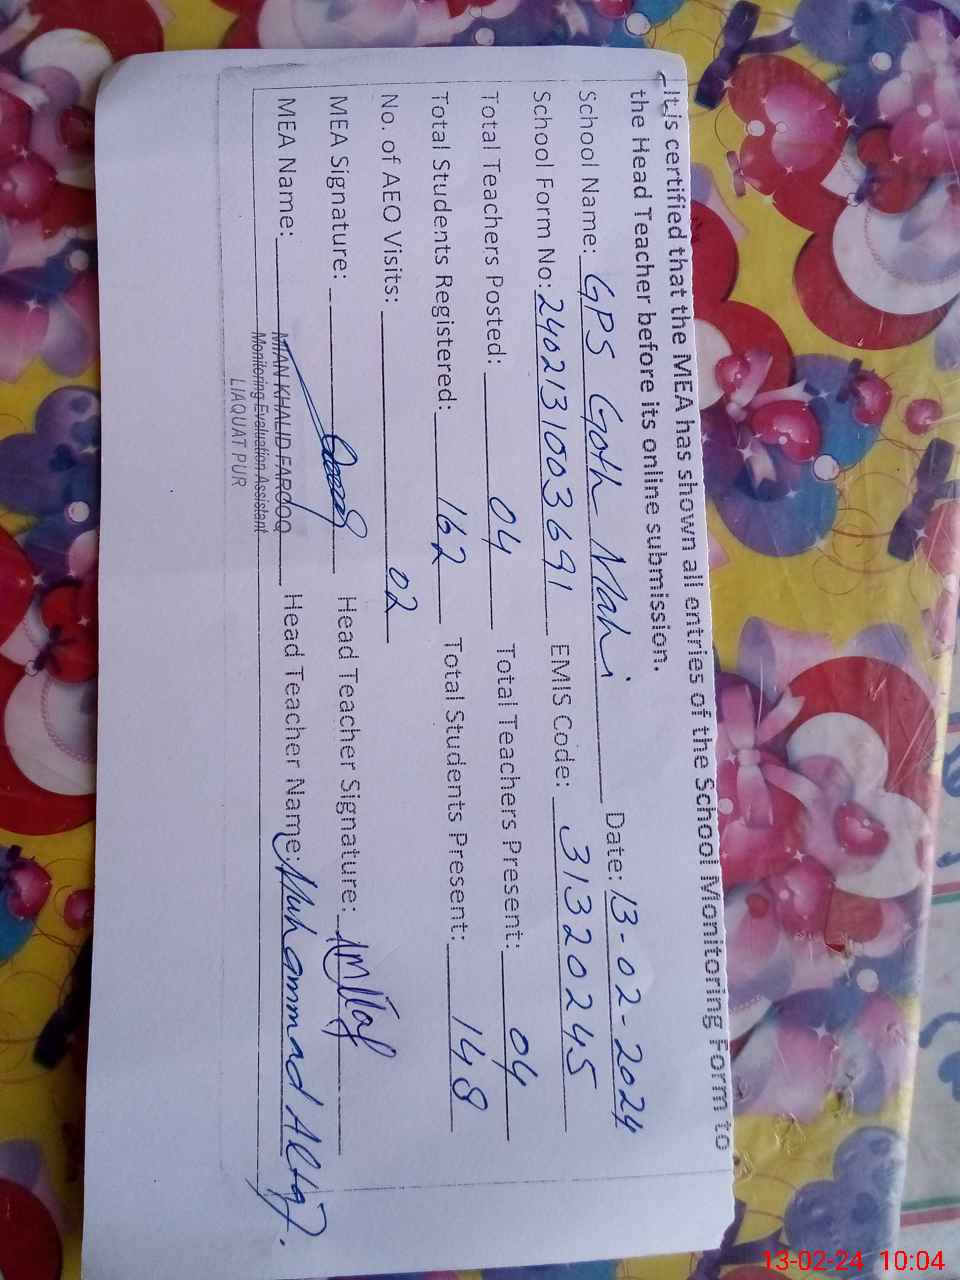 It is certified that the MEA has shown all entries of the School Monitoring Form to
the Head Teacher before its online submission.
School Name: GPS Goth Mahi Date: 13-02-2024
School Form No: 24021310036 91 EMIS Code: 31320245
Total Teachers Posted: 04 Total Teachers Present: 04
Total Students Registered: 162 Total Students Present: 148
No. of AEO Visits: 02
MEA Signature: Head Teacher Signature:
MEA Name: MIAN KHALID FAROOQ Head Teacher Name: Muhammad Altaf.
Monitoring Evaluation Assistant
LIAQUAT PUR
13-02-24 10:04